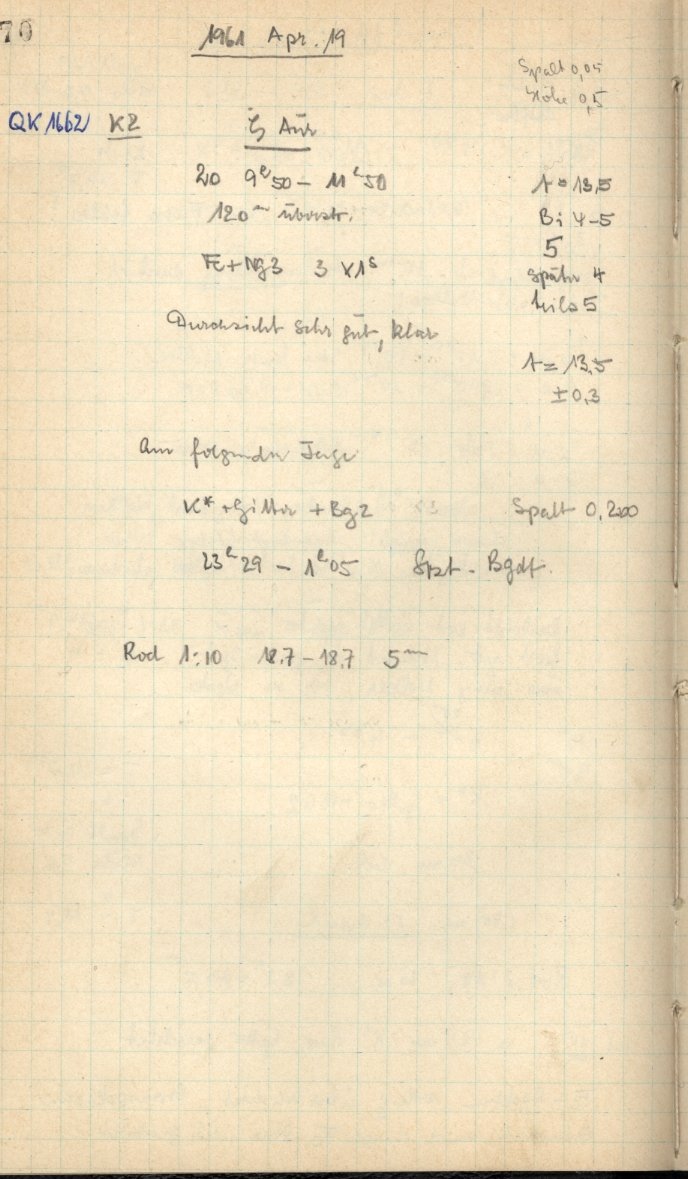 70
1961 Apr. 19
Spalt 0,05
Höhe 0,5
QK 1662 K2 ζ Aur
20 9ʰ50 – 11ʰ50 A = 13,5
120ᵐ überstr. Bi 4-5
5
Fe+Ng3 3 x 1ˢ später 4
teils 5
Durchsicht sehr gut, klar
A = 13,5
±0,3
Am folgenden Tage
K* + Gitter + Bg2 Spalt 0,200
23ʰ29 – 1ʰ05 Spt.-Bgdf.
Rod 1:10 18,7 – 18,7 5ᵐ